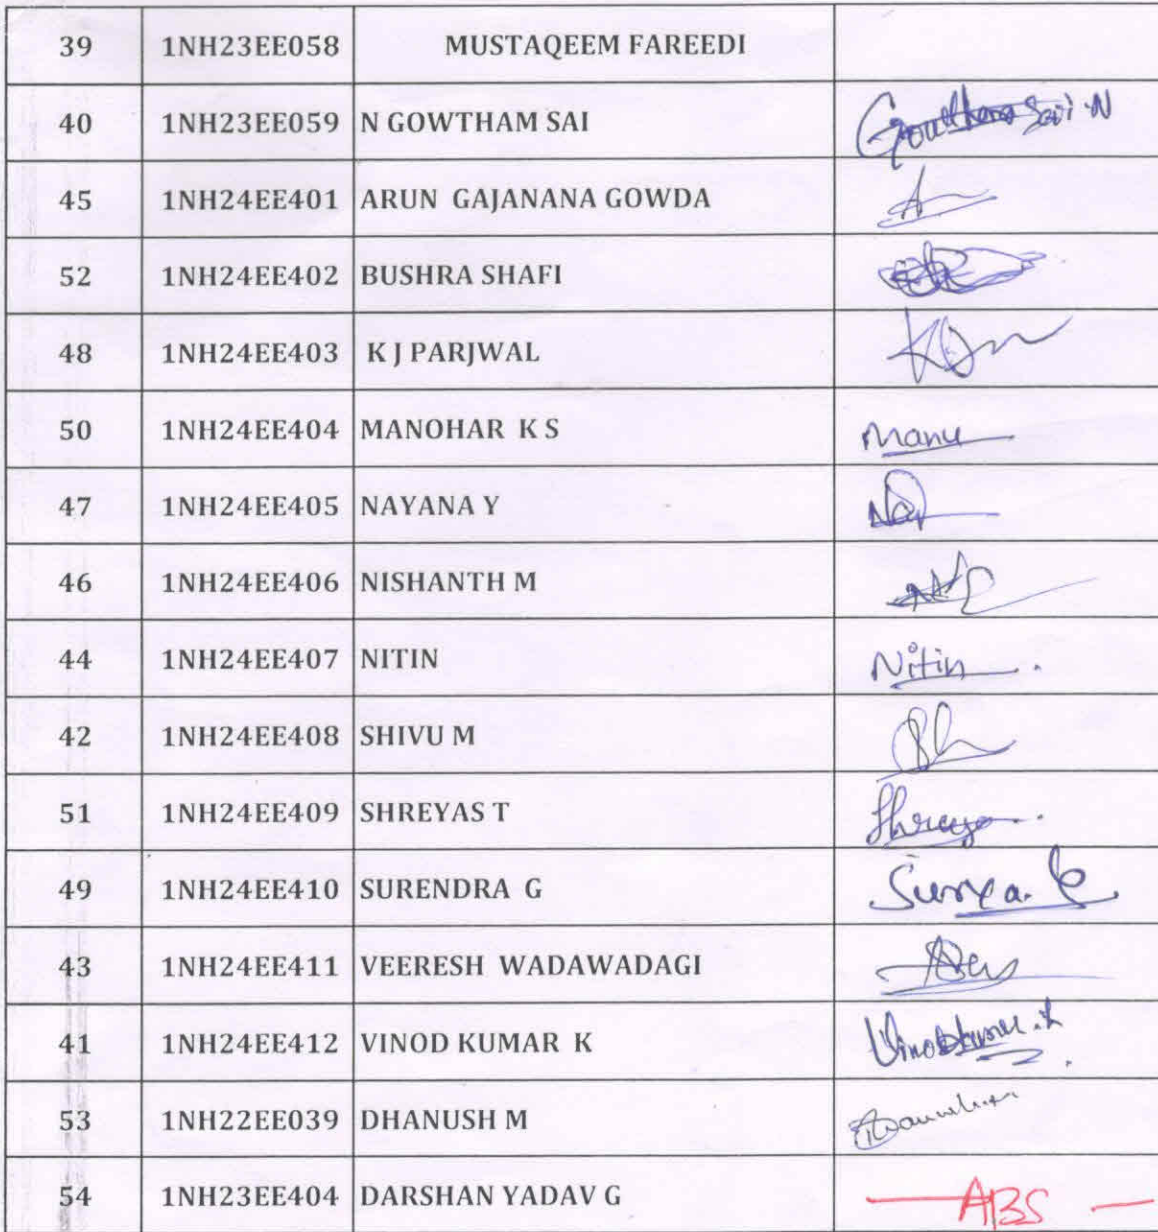 39 1NH23EE058 MUSTAQEEM FAREEDI
40 1NH23EE059 N GOWTHAM SAI Gowtham Sai N
45 1NH24EE401 ARUN GAJANANA GOWDA
52 1NH24EE402 BUSHRA SHAFI
48 1NH24EE403 K J PARJWAL
50 1NH24EE404 MANOHAR K S Manu
47 1NH24EE405 NAYANA Y
46 1NH24EE406 NISHANTH M
44 1NH24EE407 NITIN Nitin
42 1NH24EE408 SHIVU M
51 1NH24EE409 SHREYAS T
49 1NH24EE410 SURENDRA G
43 1NH24EE411 VEERESH WADAWADAGI
41 1NH24EE412 VINOD KUMAR K
53 1NH22EE039 DHANUSH M
54 1NH23EE404 DARSHAN YADAV G — ABS —